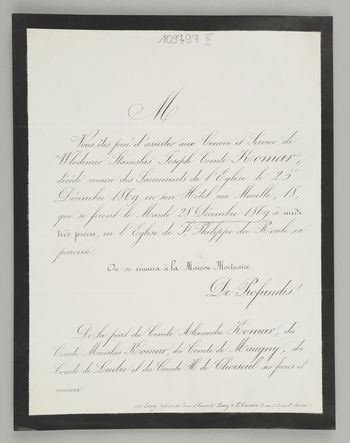 109797 III
M
Vous êtes prié d'assister aux Convoi et Service de
Wlodimir Stanislas Joseph Comte Komar,
décédé muni des Sacrements de l'Eglise le 25
Décembre 1869, en son Hôtel, rue Murillo, 18,
qui se feront le Mardi 28 Décembre 1869 à midi
très précis, en l'Eglise de St Philippe du Roule sa
paroisse.
On se réunira à la Maison Mortuaire
De Profundis!
De la part du Comte Alexandre Komar, du
Comte Komar, du Comte de Maugny, du
Comte de Ludre et du Comte H. de Choiseul ses frères et
neveux